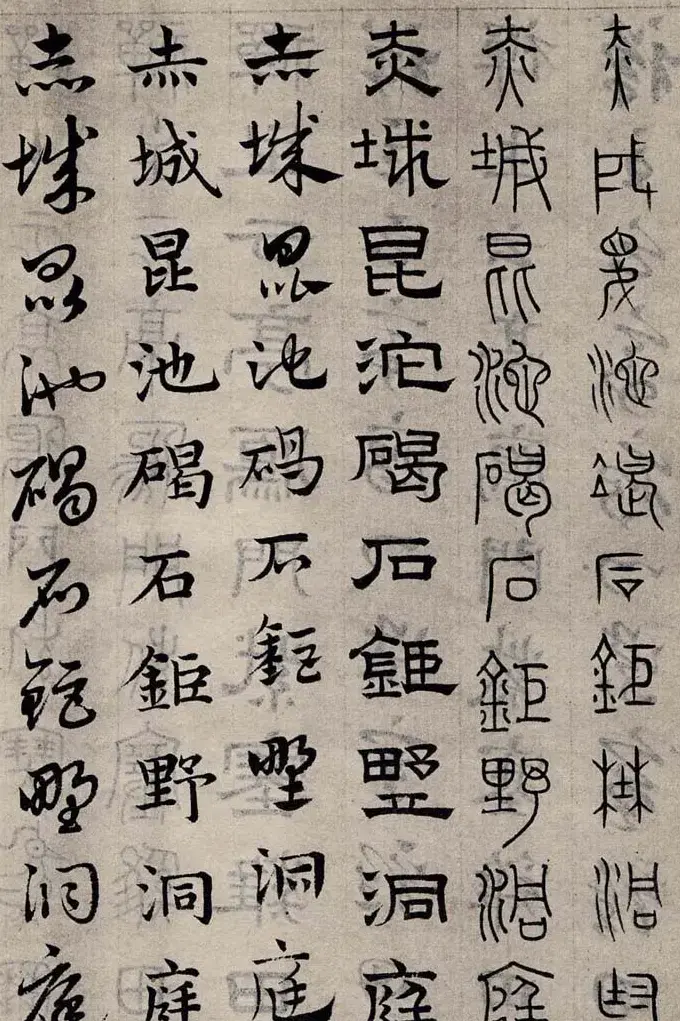 赤城昆池碣石鉅埜洞庭
赤城昆池碣石鉅野洞庭
赤城昆池碣石鉅野洞庭
赤城昆池碣石鉅野洞庭
赤城昆池碣石鉅野洞庭
赤城昆池碣石鉅野洞庭